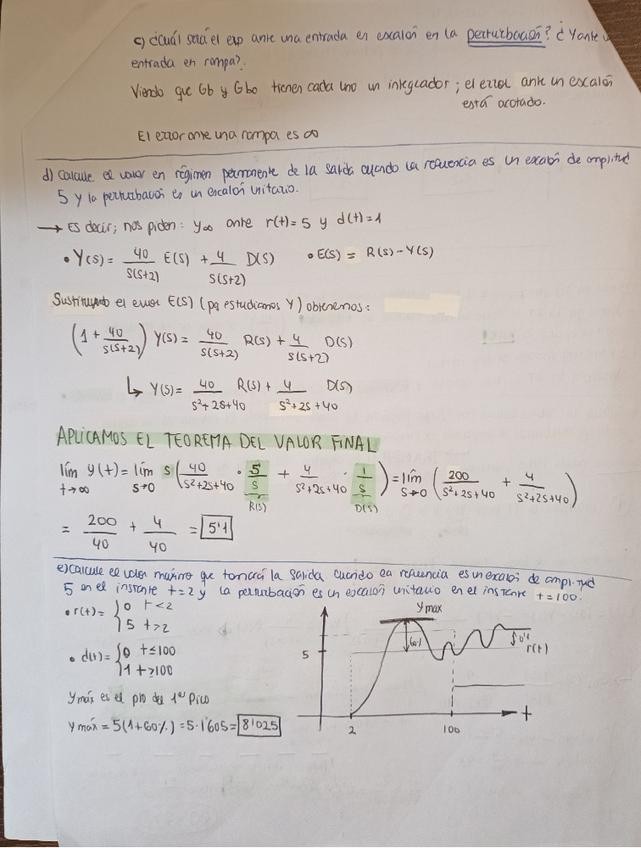 c) ¿Cuál será el erp ante una entrada en escalón en la perturbación? ¿Y ante u
entrada en rampa?
Viendo que Gb y Gbo tienen cada uno un integrador; el error ante un escalón
está acotado.
El error ante una rampa es ∞
d) Calcule el valor en régimen permanente de la salida cuando la referencia es un escalón de amplitud
5 y la perturbación es un escalón unitario.
→ Es decir; nos piden: y∞ ante r(t)=5 y d(t)=1
• Y(s) = 40/s(s+2) E(s) + 4/s(s+2) D(s) • E(s) = R(s) - Y(s)
Sustituyendo el error E(s) (pq estudiamos Y) obtenemos:
(1 + 40/s(s+2)) Y(s) = 40/s(s+2) R(s) + 4/s(s+2) D(s)
↳ Y(s) = 40/s²+2s+40 R(s) + 4/s²+2s+40 D(s)
APLICAMOS EL TEOREMA DEL VALOR FINAL
lím t→∞ y(t) = lím s→0 s (40/s²+2s+40 · 5/s + 4/s²+2s+40 · 1/s) = lím s→0 (200/s²+2s+40 + 4/s²+2s+40)
R(s) D(s)
= 200/40 + 4/40 = 5'1
e) Calcule el valor máximo que tomará la salida, cuando la referencia es un escalón de amplitud
5 en el instante t=2 y la perturbación es un escalón unitario en el instante t=100.
• r(t) = {0 t<2
5 t>2
• d(t) = {0 t≤100
1 t>100
y máx es el pto del 1er pico
y máx = 5(1+60%) = 5·1'605 = 8'025
y max
60%
0'1
r(t)
5
2
100
t